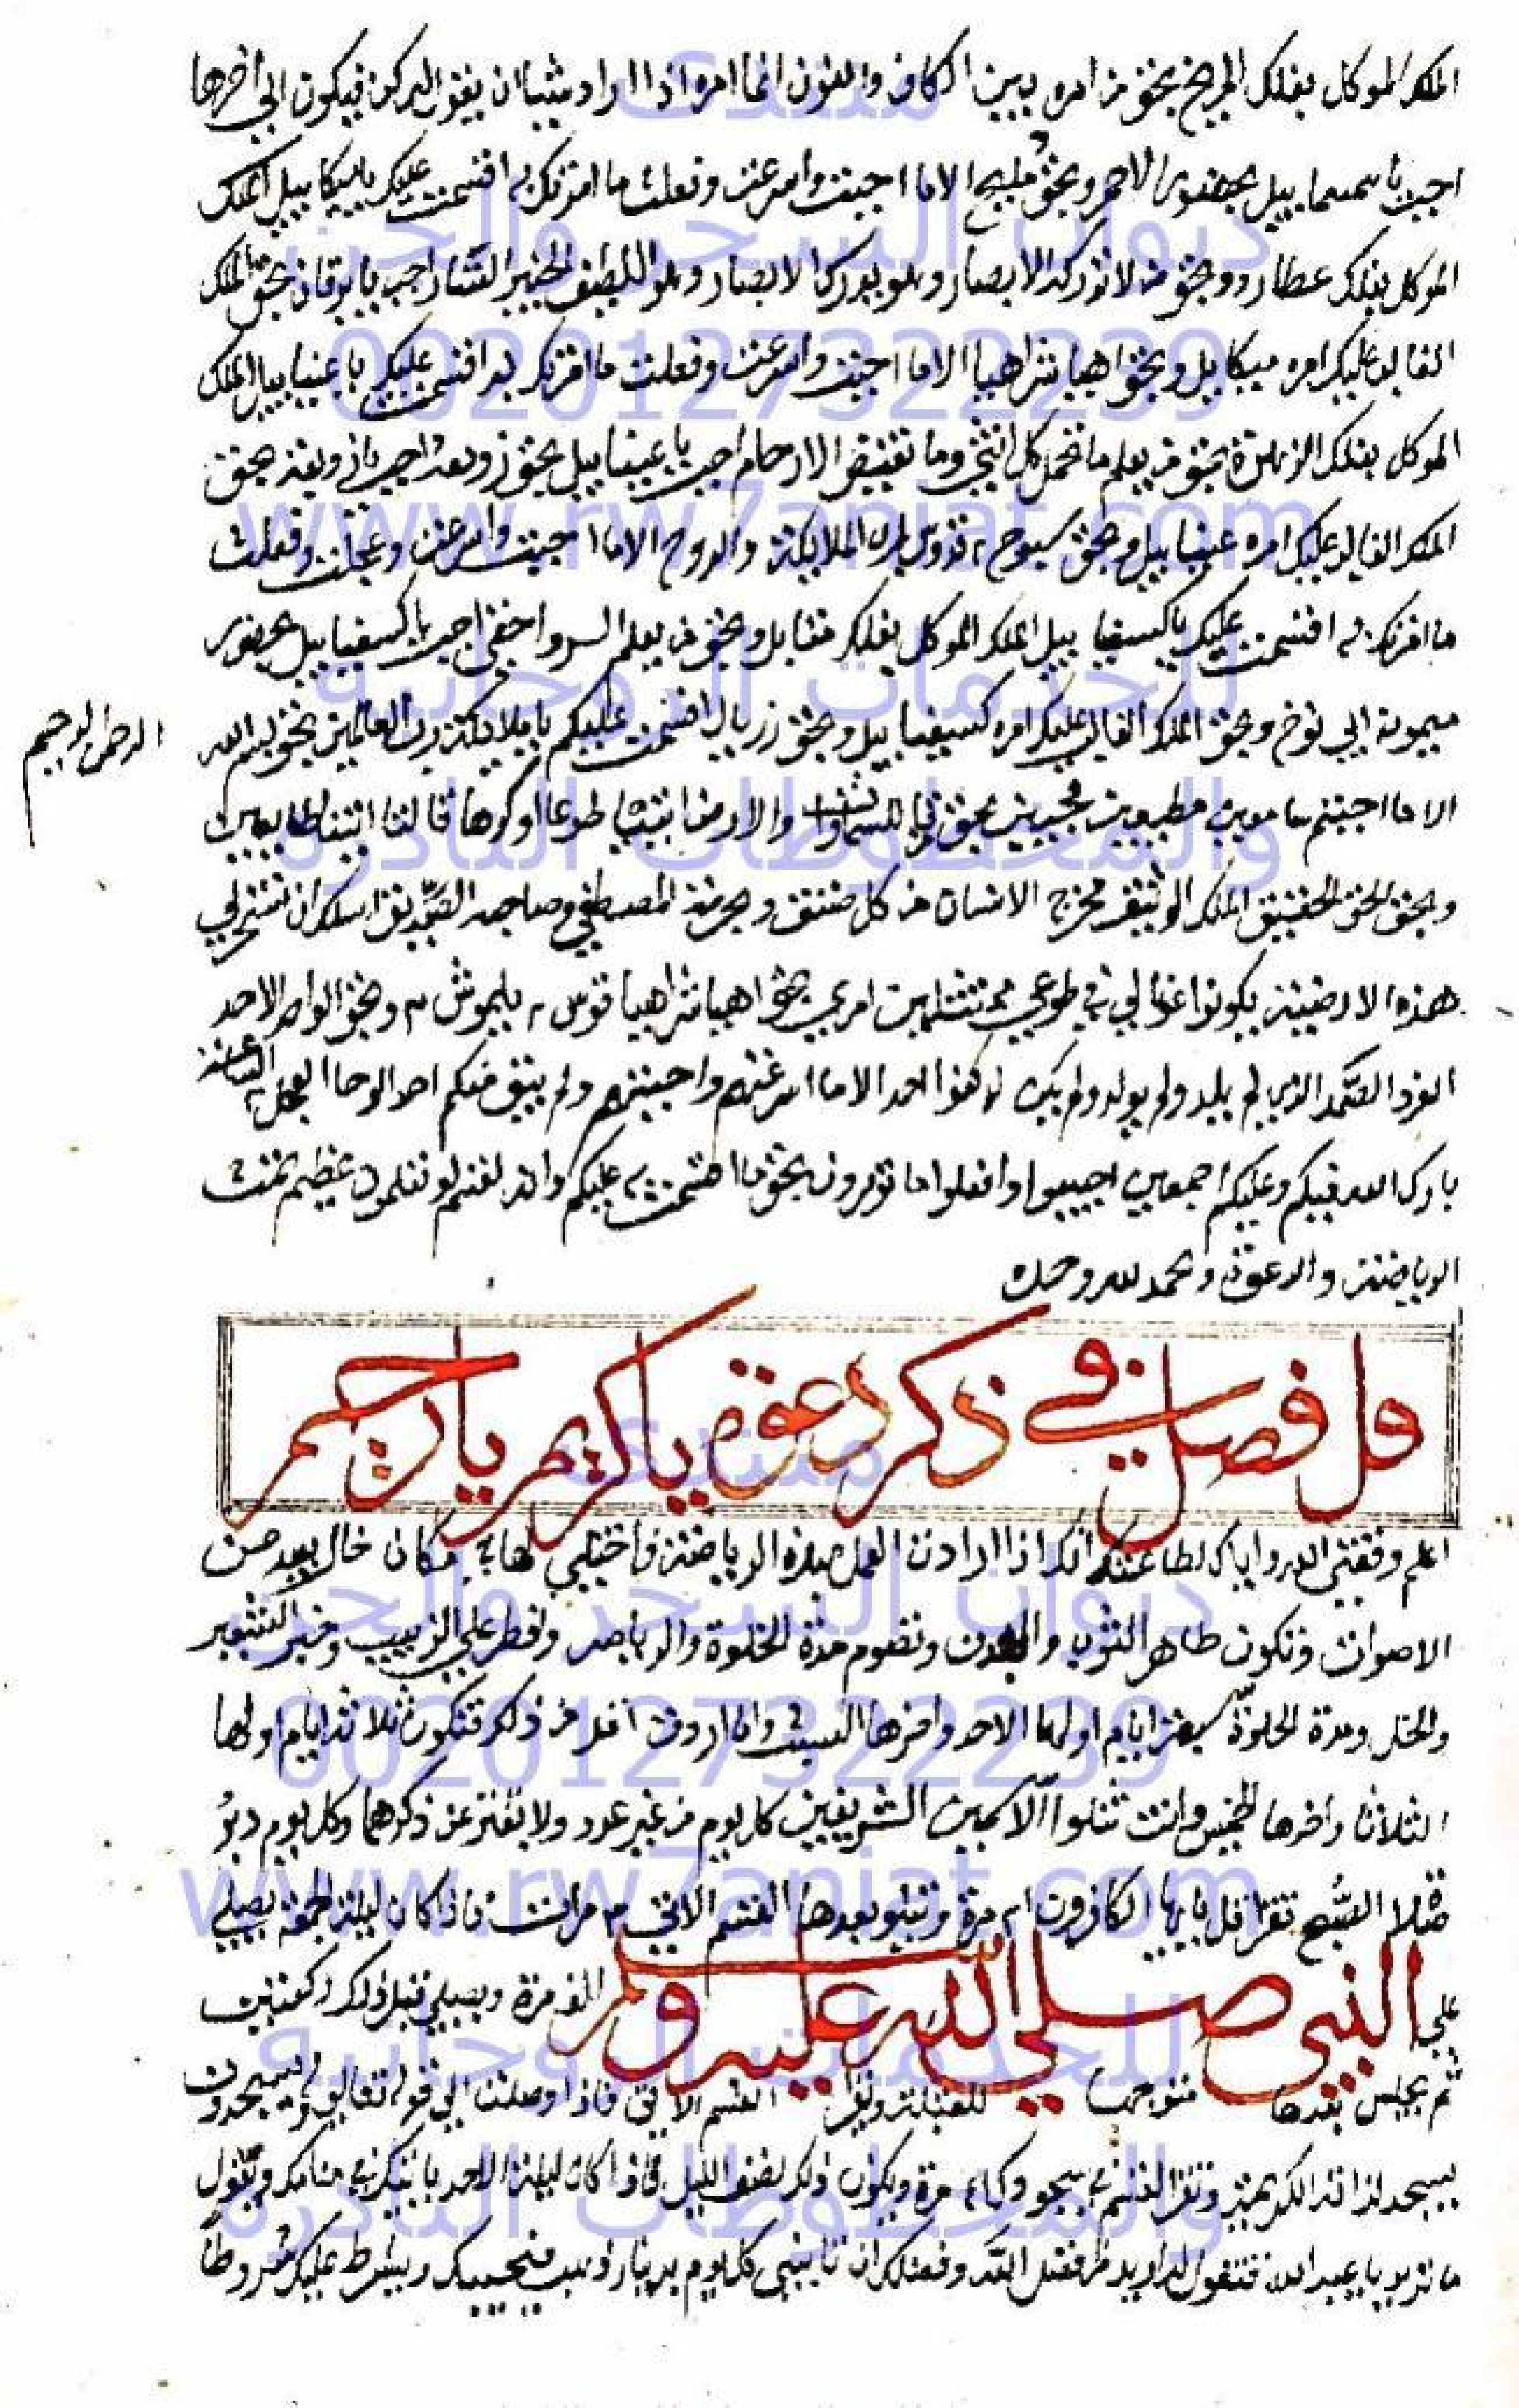 الملك الموكل بفلك المريخ بحق من امره بين الكاف والنون انما امره اذا اراد شيئا ان يقول له كن فيكون الي أخرها
اجب يا سمسماييل بحق الاحمر وبحق الا ما اجبت واسرعت وفعلت ما امرتك به اقسمت عليك يا ميكاييل الملك
الموكل بفلك عطارد وبحق من لا تدركه الابصار وهو يدرك الابصار وهو اللطيف الخبير اجب يا برقان بحق الملك
الغالب عليك امره ميكاييل وبحق اهيا شراهيا الا ما اجبت واسرعت وفعلت ما امرتك به اقسمت عليك يا عنياييل الملك
الموكل بفلك الزهرة بحق من يعلم ما تحمل كل انثي وما تغيض الارحام اجب يا عنياييل بحق زوبعه اجب يا زوبعة بحق
الملك الغالب عليك امره عنياييل وبحق سبوح قدوس رب الملايكة والروح الا ما اجبت واسرعت وعجلت وفعلت
ما امرتك به اقسمت عليك يا كسفياييل الملك الموكل بفلك مقاتل وبحق من يعلم السر واخفي اجب يا كسفياييل بحضور
ميمون ابي نوخ وبحق الملك الغالب عليك امره كسفياييل وبحق زريال اقسمت عليكم يا ملايكة رب العالمين بحق بسم الله
الرحمن الرحيم
الا ما اجبتم سامعين مطيعين مجيبين بحق والارض ائتيا طوعا او كرها قالتا اتينا طايعين
وبحق الحق الحقيق الملك الوثيق مخرج الانسان من كل ضيق وبحرمة المصطفي وصاحبه الصديق اسلك ان تسخر لي
هذه الارضيه يكونوا عونا لي في طوعي ممتثلين امري بحق اهيا شراهيا قوس ٢ يلموش ٢ وبحق الواحد الاحد
الفرد الصمد الذي لم يلد ولم يولد ولم يكن له كفوا احد الا ما اسرعتم واجبتم ولم يبق منكم احد الوحا العجل الساعة
بارك الله فيكم وعليكم اجمعين اجيبوا وافعلوا ما تومرون بحق ما اقسمت به عليكم وانه لقسم لو تعلمون عظيم تمت
الرياضة والدعوة والحمد لله وحده
قل فصل في ذكر دعوة يا كريم يا رحيم
اعلم وفقني الله واياك لطاعته انك اذا اردت العمل بهذه الرياضة فأختلي لها في مكان خال بعيد من
الاصوات وتكون طاهر الثوب والبدن وتصوم مدة الخلوة والرياضه وافطر علي الزبيب وخبز الشعير
والخل ومدة الخلوة سبعة ايام اولها الاحد واخرها السبت وان اردت اقل من ذلك فتكون ثلاثة ايام اولها
الثلاثا واخرها الخميس وانت تتلوا الاسمين الشريفين كل يوم من غير عدد ولا تفتر عن ذكرهما وكل يوم دبر
صلاة الصبح تقرا قل يا يها الكافرون مرة وتتلو بعدها القسم الاتي ٣ مرات فاذا كان ليلة الجمعة يصلي
علي النبي صلي الله عليه وسلم الف مرة ويصلي قبل ذلك ركعتين
ثم يجلس بعدها متوجها للقبلة ويقرا القسم الاتي فاذا وصلت الي قوله تعالي ويسبحون
يسجد لذاته الكريمة وتقرا القسم في سجودك مرة ويكون ذلك نصف الليل فاذا كان ليلة الاحد ياتيك في منامك ويقول
ما تريد يا عبد الله فتقول له اريد من فضل الله وفضلك ان تاتيني كل يوم بدينار ذهب فيجيبك ويشرط عليك شروطا